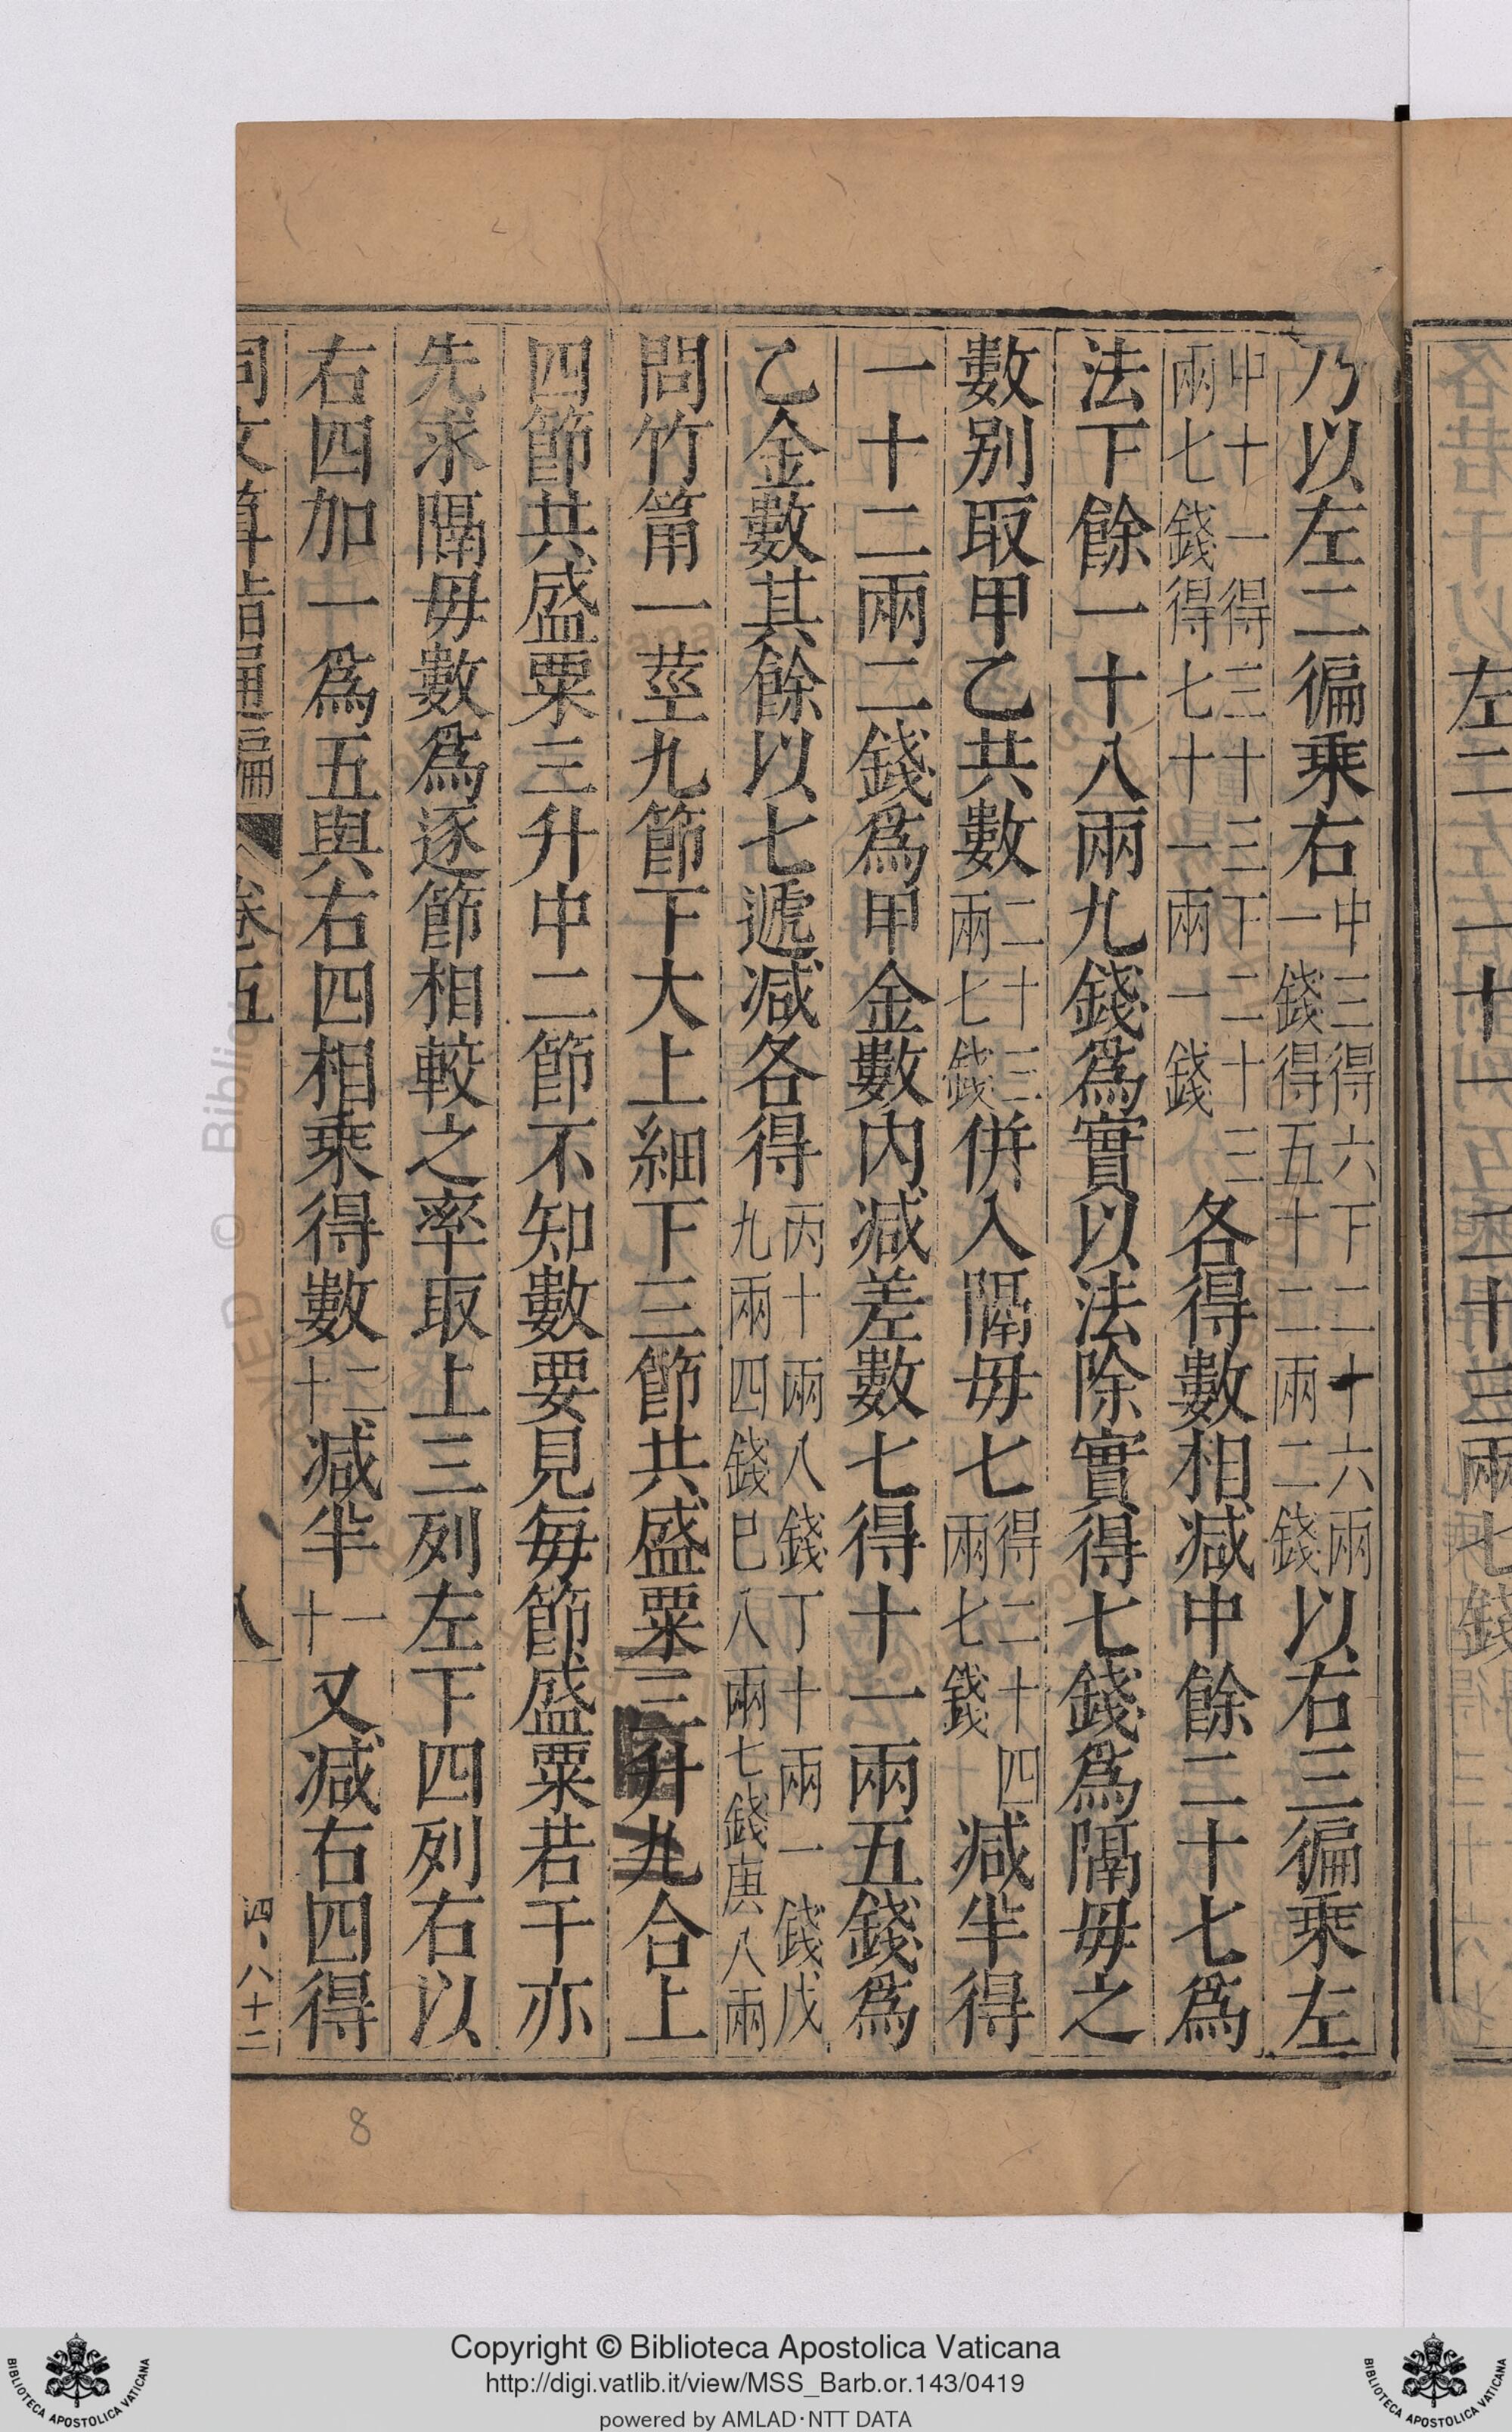 左二一十一二十三兩七錢
乃以左二徧乘右中三得六下二十六兩一錢得五十二兩二錢以右三徧乘左
中十一得三十三下二十三兩七錢得七十一兩一錢各得數相减中餘二十七爲
法下餘一十八兩九錢爲實以法除實得七錢爲隔毋之
數别取甲乙共數二十三兩七錢併入隔毋七得二十四兩七錢减半得
一十二兩二錢爲甲金數内减差數七得十一兩五錢爲
乙金數其餘以七遞减各得丙十兩八錢丁十兩一錢戊九兩四錢巳八兩七錢庚八兩
問竹筩一莖九節下大上細下三節共盛粟三升九合上
四節共盛粟三升中二節不知數要見每節盛粟若干亦
先求隔毋數爲逐節相較之率取上三列左下四列右以
右四加一爲五與右四相乘得數二十减半一十又减右四得
同文算指通編 卷五 八 四、八十二
8
Copyright © Biblioteca Apostolica Vaticana
http://digi.vatlib.it/view/MSS_Barb.or.143/0419
powered by AMLAD·NTT DATA
BIBLIOTECA APOSTOLICA VATICANA
BIBLIOTECA APOSTOLICA VATICANA